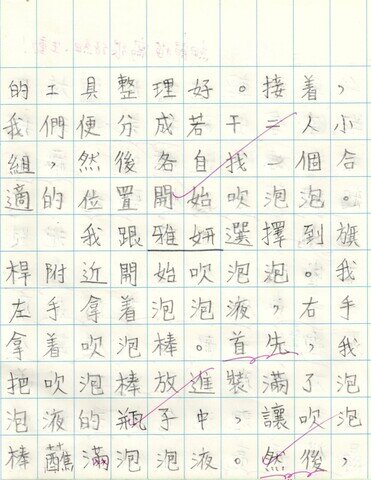 的工具整理好。接着，
我們便分成若干二人小
組，然後各自找一個合
適的位置開始吹泡泡。
我跟雅妍選擇到旗
桿附近開始吹泡泡。我
左手拿着泡泡液，右手
拿着吹泡棒。首先，我
把吹泡棒放進裝滿了泡
泡液的瓶子中，讓吹泡
棒蘸滿泡泡液。然後，